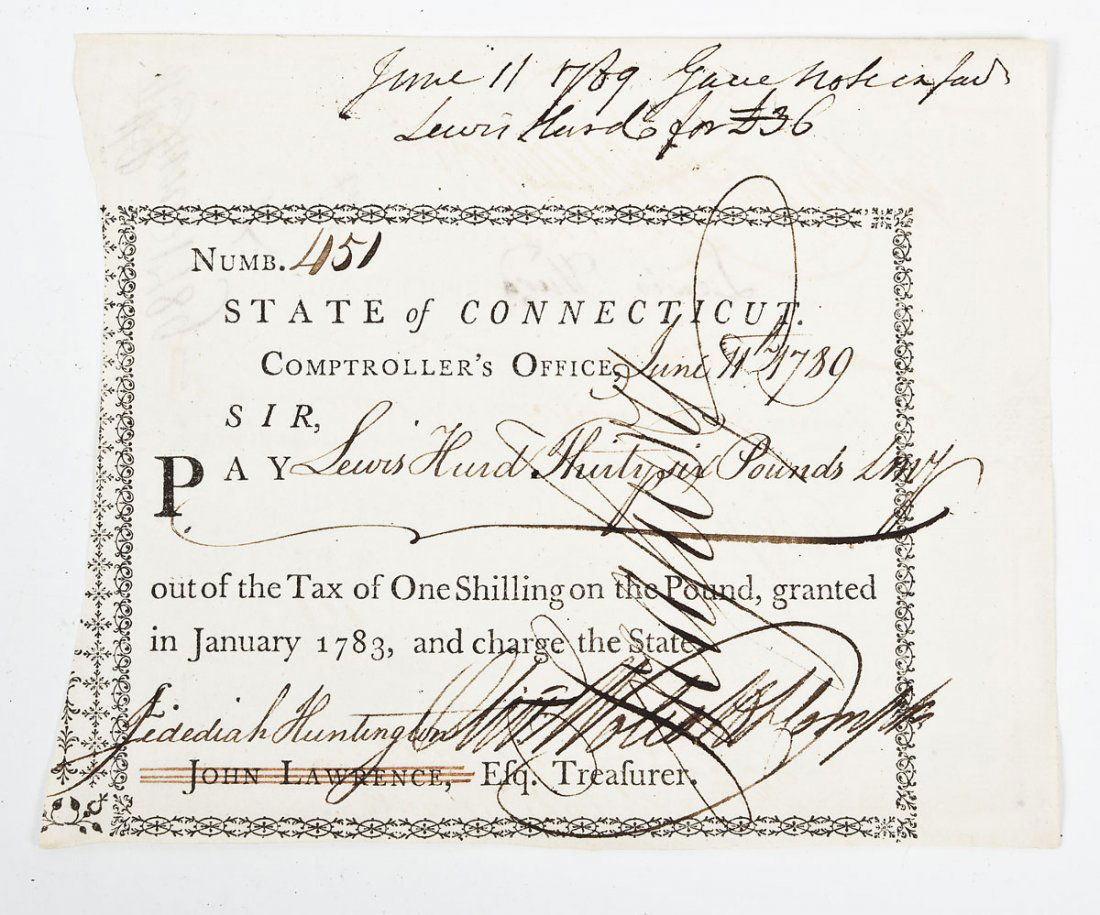 June 11 1789 Gave Note in fav
Lewis Hurd for £36
NUMB. 451
STATE of CONNECTICUT.
COMPTROLLER'S OFFICE, June 11th 1789
SIR,
PAY Lewis Hurd Thirty six Pounds
out of the Tax of One Shilling on the Pound, granted
in January 1783, and charge the State
Jedediah Huntington
JOHN LAWRENCE, Eſq. Treaſurer.